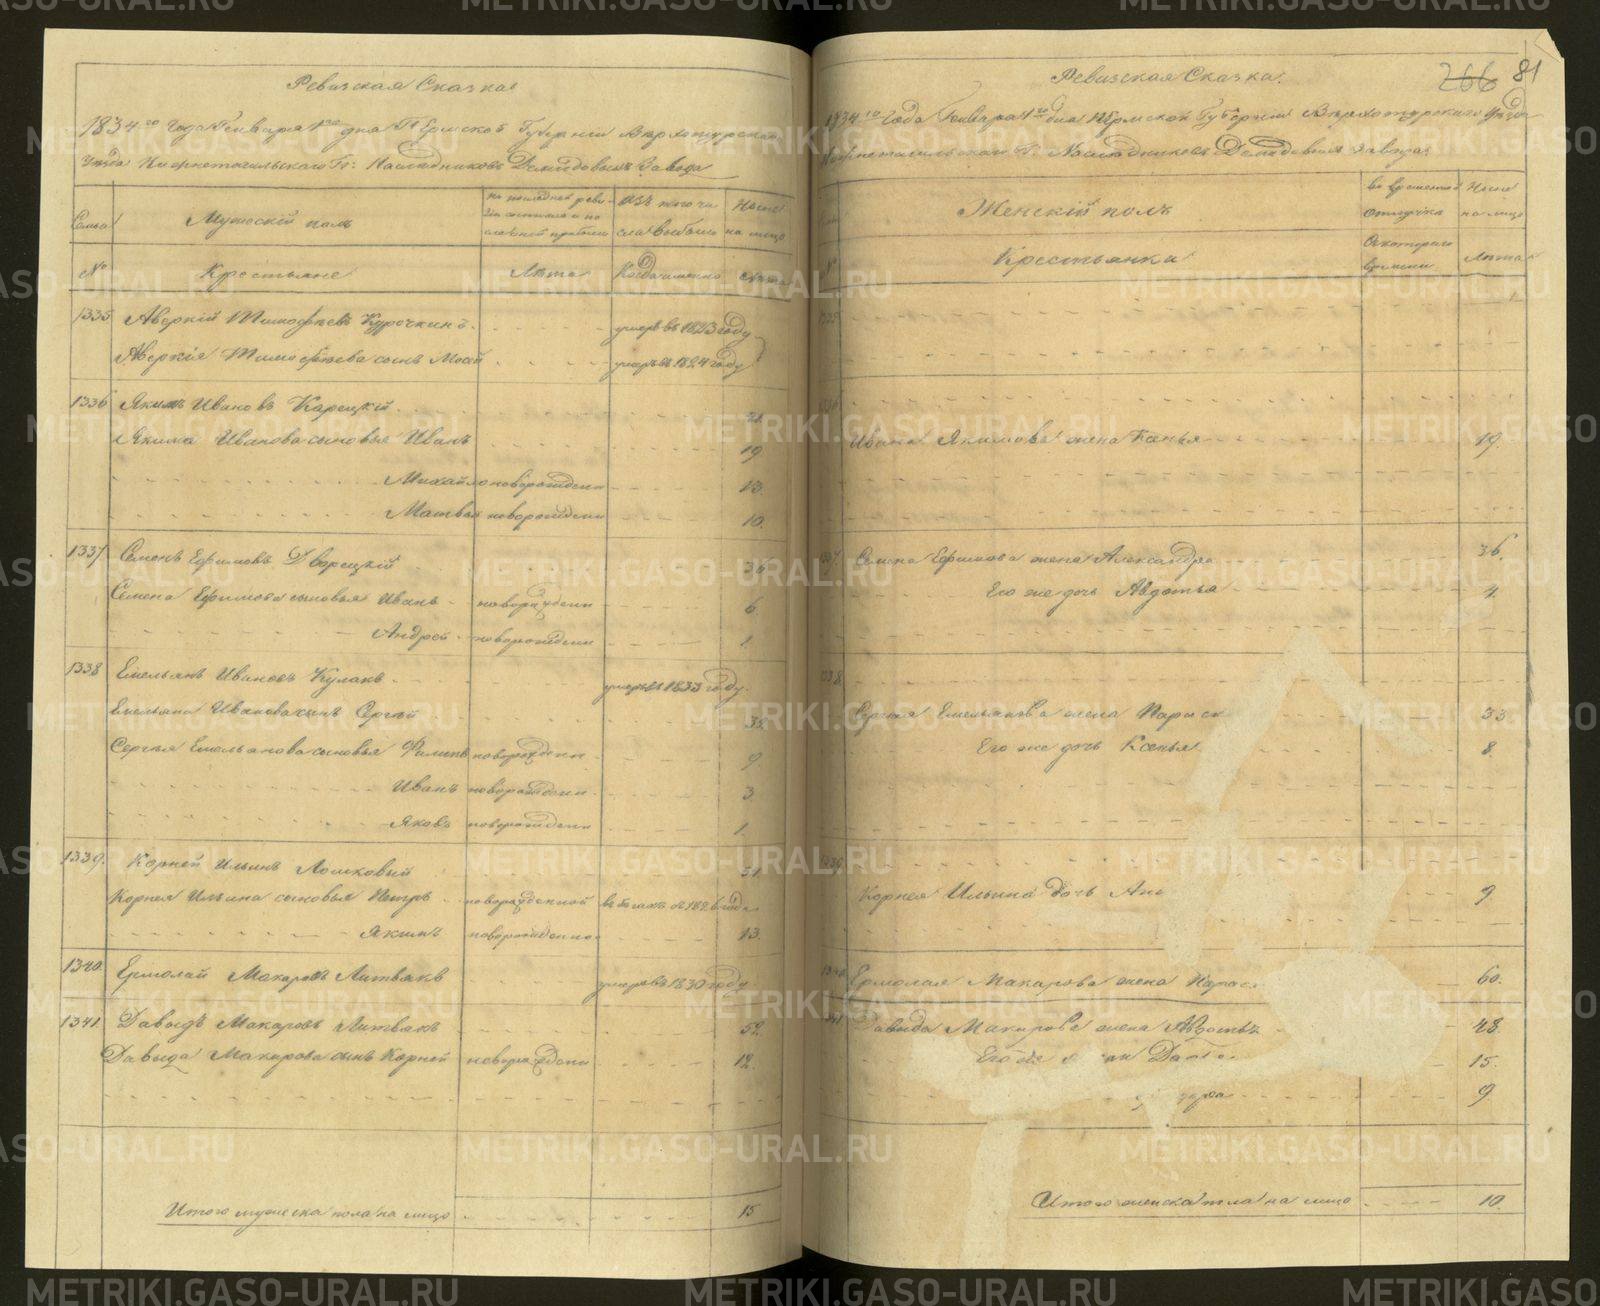 Ревизская Сказка
1834го Года Генваря 1го дня Пермской Губернии Верхотурскаго
Уезда Нижнетагильскаго Гг: Наследниковъ Демидовыхъ Завода
Семьи
Мужескій полъ
по последней реви-
зіи состояло и по
слѣ оной прибыло
Изъ того чи
сла выбыло
Ныне
на лицо
№
Крестьяне
Лѣта
Когда именно
Лѣта
1335 Аверкій Тимофеевъ Курочкинъ умеръ въ 1823 году
Аверкія Тимофеева сынъ умеръ въ 1824 году
1336 Якимъ Ивановъ Карецкій
Якима Иванова сыновья Иванъ 19
Михайло новорожден 13.
Матвей новорожден 10.
1337. Семенъ Ефимовъ Дворецкій 36
Семена Ефимова сыновья Иванъ новорожден 6.
Андрей новорожден 1.
1338 Емельянъ Ивановъ Кулакъ умеръ въ 1833 году.
Емельяна Иванова сынъ Сергей
Сергея Емельянова сыновья Филипъ новорожден 9.
Иванъ новорожден 3
Яковъ новорожден 1.
1339. Корней Ильинъ
Корнея Ильина сыновья Петръ новорожденной въ бегахъ съ году
Якимъ новорожденно 13.
1340. Ермолай Макаровъ Литвякъ умеръ въ 1830 году
1341. Давыдъ Макаровъ Литвякъ 52.
Давыда Макарова сынъ Корней новорожден 12.
Итого мужеска пола на лицо 15
266 81
Ревизская Сказка.
1834го Года Генваря 1го дня Пермской Губернии Верхотурскаго Уезда
Нижнетагильскаго Гг. Наследниковъ Демидовыхъ завода
Женскій полъ
во временной
отлучке
Ныне
на лицо
Крестьянки
Съ котораго
времени
Лѣта
Ивана Якимова жена 19.
1337. Семена Ефимова жена Александра 36.
Его же дочь Авдотья 4.
1338.
Сергея Емельянова жена Параск 33
Его же дочь Ксенья 8.
1339.
Корнея Ильина дочь 9
1340. Ермолая Макарова жена Парас 60.
1341. Давыда Макарова жена Авдотья 48.
Его 15.
9
Итого женска пола на лицо 10.
METRIKI.GASO-URAL.RU